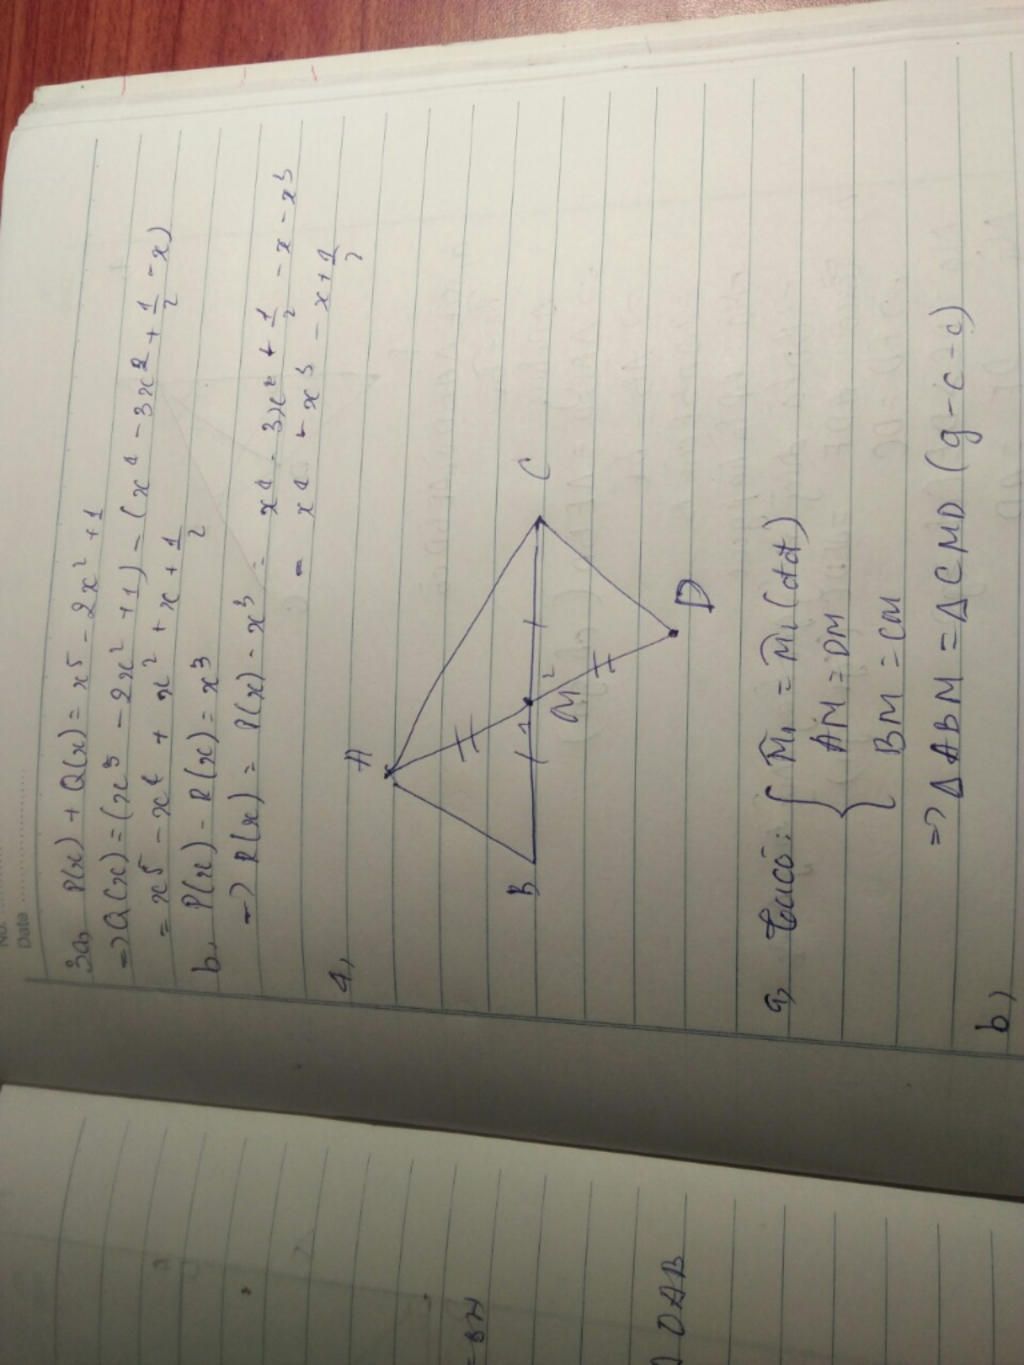 No.
Date
3a, P(x) + Q(x) = x⁵ - 2x² + 1
=> Q(x) = (x⁵ - 2x² + 1) - (x⁴ - 3x² + 1/2 - x)
= x⁵ - x⁴ + x² + x + 1/2
b, P(x) - R(x) = x³
=> R(x) = P(x) - x³ = x⁴ - 3x² + 1/2 - x - x³
= x⁴ - x³ - x + 1/2
4,
A
B
C
1
2
M
D
a, Ta có: { M̂₁ = M̂₁ (đđ)
AM = DM
BM = CM
=> Δ ABM = Δ CMD (g-c-c)
b)
= BH
OAB